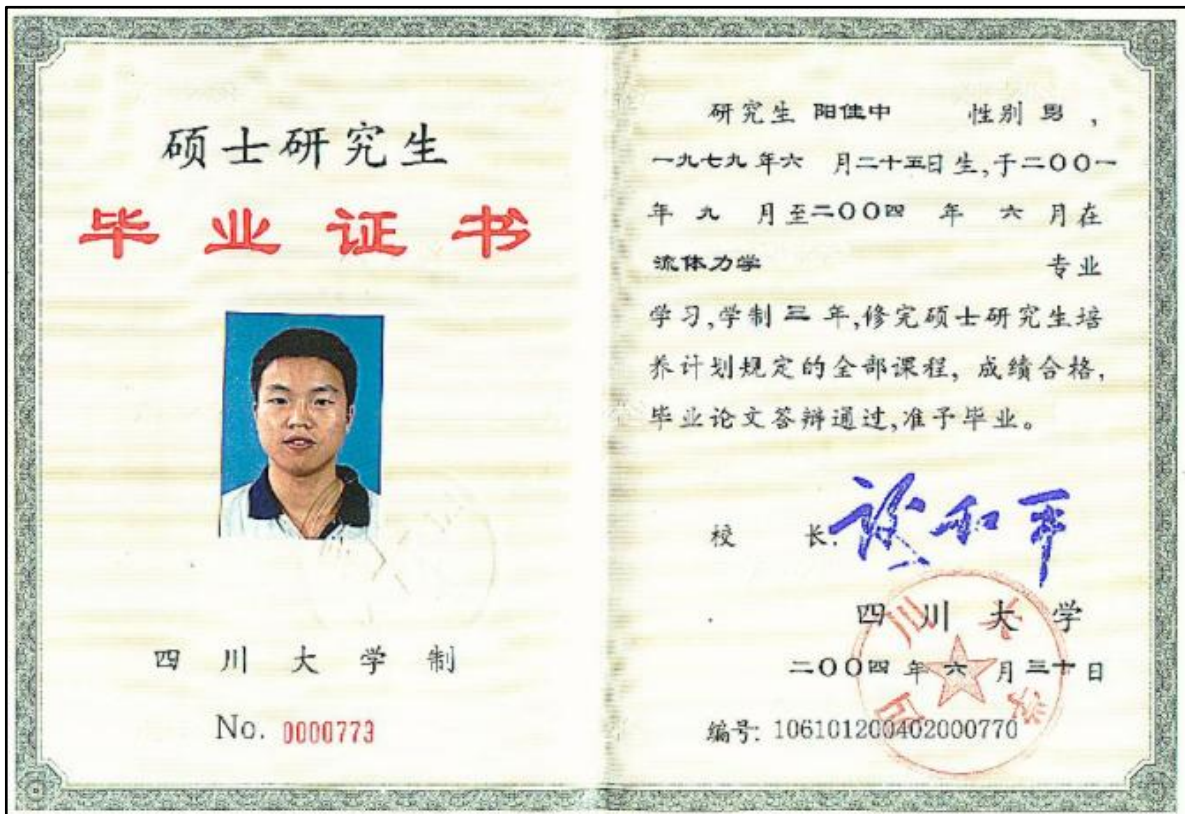 硕士研究生
毕业证书
四川大学制
No. 0000773
研究生 阳佳中 性别 男，
一九七九年六 月二十五日生,于二〇〇一
年 九 月至二〇〇四 年 六 月在
流体力学 专业
学习,学制 三 年,修完硕士研究生培
养计划规定的全部课程, 成绩合格,
毕业论文答辩通过,准予毕业。
校 长:
四川大学
二〇〇四 年 六 月 三十日
编号: 106101200402000770
四川大学